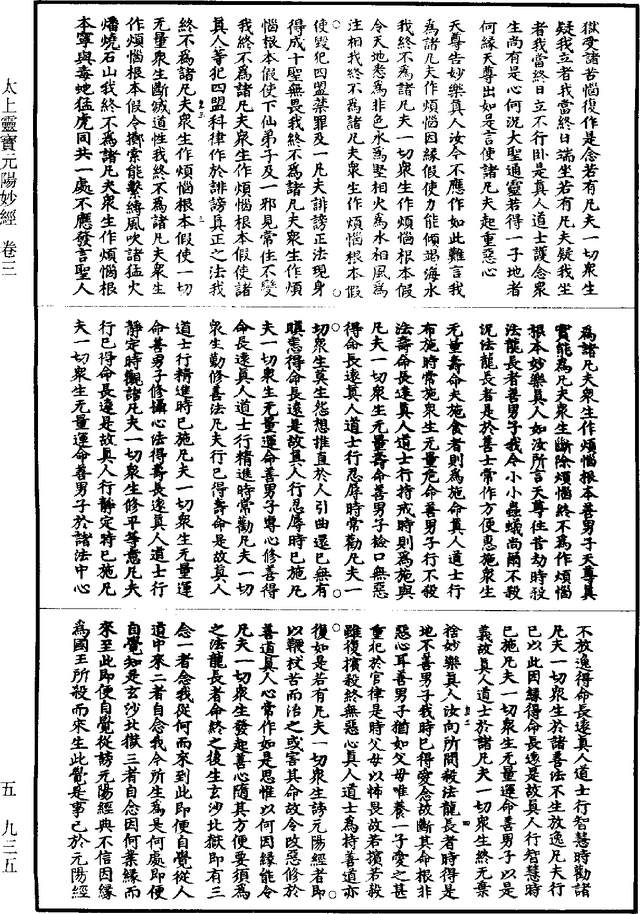 獄受諸苦惱復作是念若有凡夫一切衆生
疑我立者我當終日端坐若有凡夫疑我坐
者我當終日立不行卧是真人道士護念衆
生尚有是心何況大聖通靈若得一子地者
何緣天尊出如是言使諸凡夫起重惡心
天尊告妙樂真人汝今不應作如此難言我
為諸凡夫作煩惱因緣假使力能傾竭海水
我終不為諸凡夫一切衆生作煩惱根本假
令天地悉為非色水為堅相火為水相風為
注相我終不為諸凡夫衆生作煩惱根本假
使毀犯四盟禁罪及一凡夫誹謗正法現身
得成十聖無畏我終不為諸凡夫衆生作煩
惱根本假使下仙弟子及一邪見常住不變
我終不為諸凡夫衆生作煩惱根本假使諸
真人等犯四盟科律作於誹謗真正之法我
終不為諸凡夫衆生作煩惱根本假使一切
无量衆生斷滅道性我終不為諸凡夫衆生
作煩惱根本假令擲索能繫縛風吹諸猛火
燔燒石山我終不為諸凡夫衆生作煩惱根
本寧與毒蛇猛虎同共一處不應發言聖人
為諸凡夫衆生作煩惱根本善男子天尊真
實能為凡夫衆生斷除煩惱終不為作煩惱
根本妙樂真人如汝所言天尊往昔劫時殺
法龍長者善男子我今小小蟲蟻尚爾不殺
況法龍長者是於善士常作方便惠施衆生
无量壽命夫施食者則為施命真人道士行
布施時常施衆生无量危命善男子行不殺
法壽命長遠真人道士行持戒時則為施與
凡夫一切衆生无量壽命善男子撿口無惡
得命長遠真人道士行忍辱時常勸凡夫一
切衆生莫生怨想推直於人引曲還已無有
瞋恚得命長遠是故真人行忍辱時已施凡
夫一切衆生无量運命善男子專心修善得
命長遠真人道士行精進時常勸凡夫一切
衆生勤修善法凡夫行已得壽命是故真人
道士行精進時已施凡夫一切衆生无量運
命善男子修攝心法得壽長遠真人道士行
靜定時觀諸凡夫一切衆生修平等意凡夫
行已得命長遠是故真人行靜定時已施凡
夫一切衆生无量運命善男子於諸法中心
不放逸得命長遠真人道士行智慧時勸諸
凡夫一切衆生於諸善法不生放逸凡夫行
已以此因緣得命長遠是故真人行智慧時
已施凡夫一切衆生无量運命善男子以是
義故真人道士於諸凡夫一切衆生終无棄
捨妙樂真人汝向所問殺法龍長者時得是
地不善男子我時已得愛念故斷其命根非
惡心耳善男子猶如父母唯養一子愛之甚
重犯於官律是時父母以怖畏故若擯若殺
雖復擯殺終無惡心真人道士為持善道亦
復如是若有凡夫一切衆生謗元陽經者即
以鞭杖苦而治之或害其命故令改惡修於
善道真人心常作如是思惟以何因緣能令
凡夫一切衆生發起善心隨其方便要須為
之法龍長者命終之後生玄沙北獄即有三
念一者念我從何而來到此即便自覺從人
道中來二者自念我今所生為是何處即便
自覺知是玄沙北獄三者自念因何業緣而
來至此即便自覺從謗元陽經典不信因緣
為國王所殺而來生此覺是事已於元陽經
太上靈寶元陽妙經 卷三
五 九三五